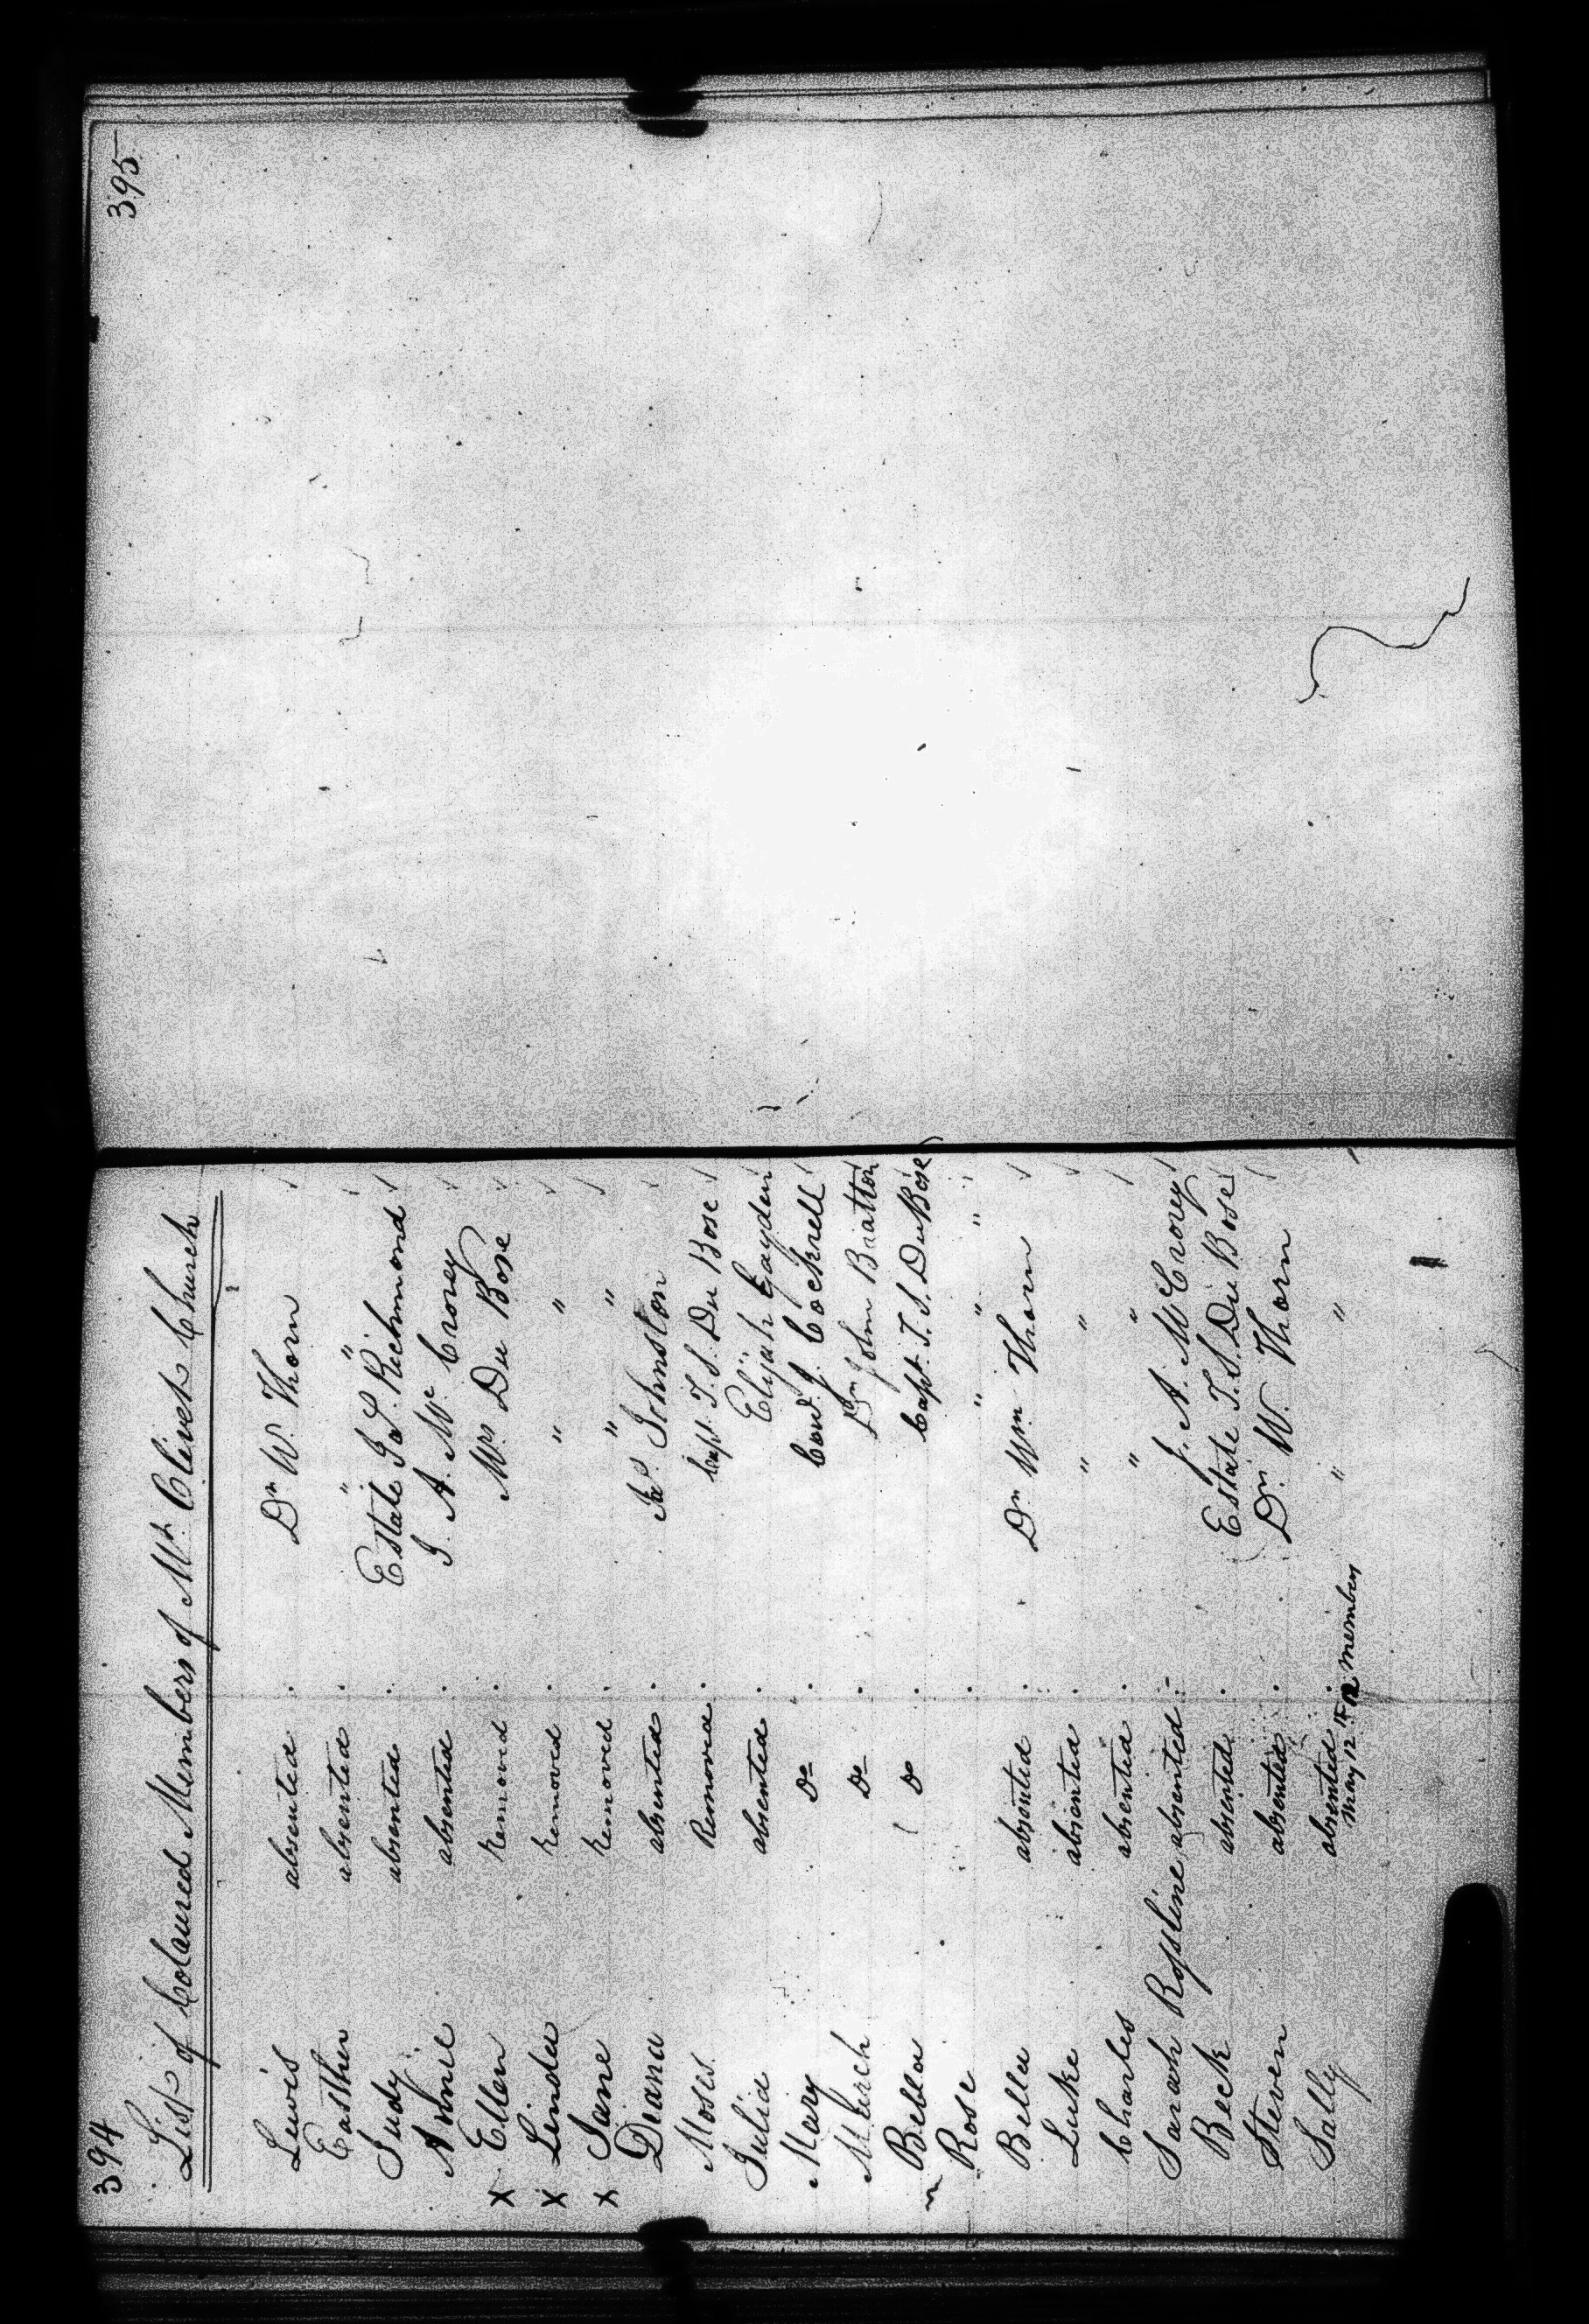 394
List of Coloured Members of Mt. Olivet Church
Lewis absented . Dr W. Thorn
Easther absented . " "
Judy absented . Estate Jas. Richmond
Annie absented . J. A. McCrorey
x Ellen removed . Mrs Du Bose
x Linda removed . " "
x Jane removed . " "
Diana absented . Jas. Johnston
Moses Removed . Capt. T. S. Du Bose
Julia absented . Elijah Gayden
Mary Do . J. Cockrell
Do . Dr John Bratton
Bella Do . Capt. T. S. DuBose
Rose . " " "
Bella absented . Dr Wm Thorn
Luke absented . " "
Charles absented . " "
Sarah Rossline absented . J. A. McCrorey
Beck absented . Estate T. S. Du Bose
Steven absented . Dr W. Thorn
Sally absented . " "
May 12 members
395